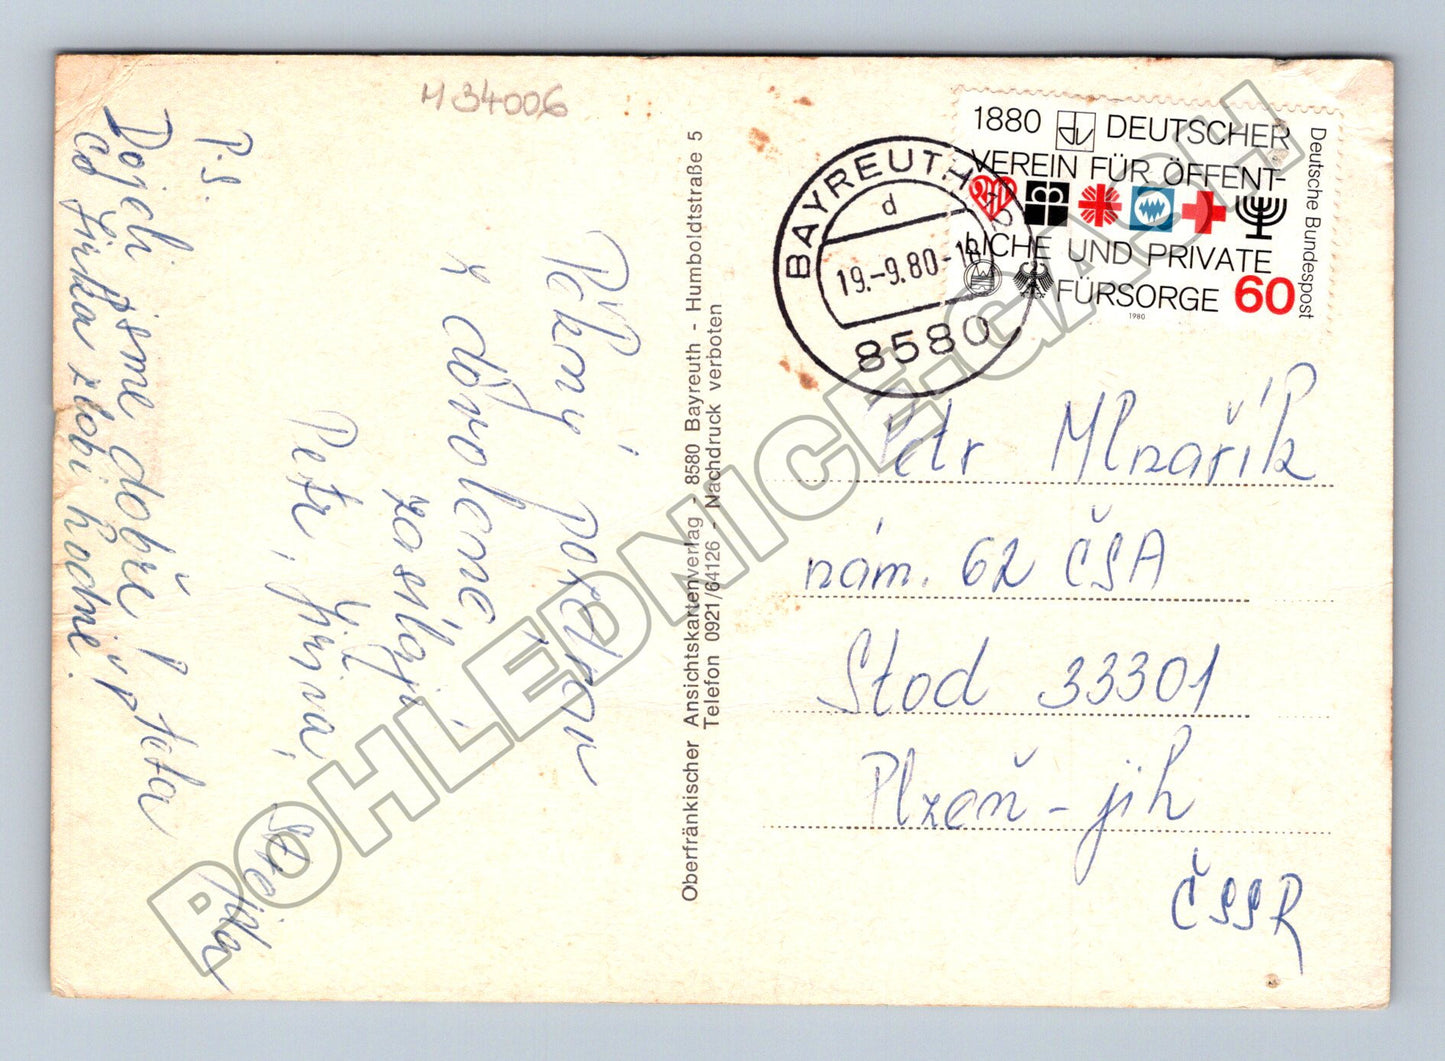 M 34006
Pěkný pozdrav
z dovolené
zasílají
Petr, Jiřina,
P.S.
Dojeli jsme dobře! teta
Co Jirka zlobí hodně?
Oberfränkischer Ansichtskartenverlag - 8580 Bayreuth - Humboldtstraße 5
Telefon 0921/64126 - Nachdruck verboten
BAYREUTH 12
d
19.-9.80-
8580
1880 DEUTSCHER
VEREIN FÜR ÖFFENT-
LICHE UND PRIVATE
FÜRSORGE 60
1980
Deutsche Bundespost
Petr Mlnařík
nám. 62 ČSA
Stod 33301
Plzeň - jih
ČSSR
POHLEDNICE-GASH